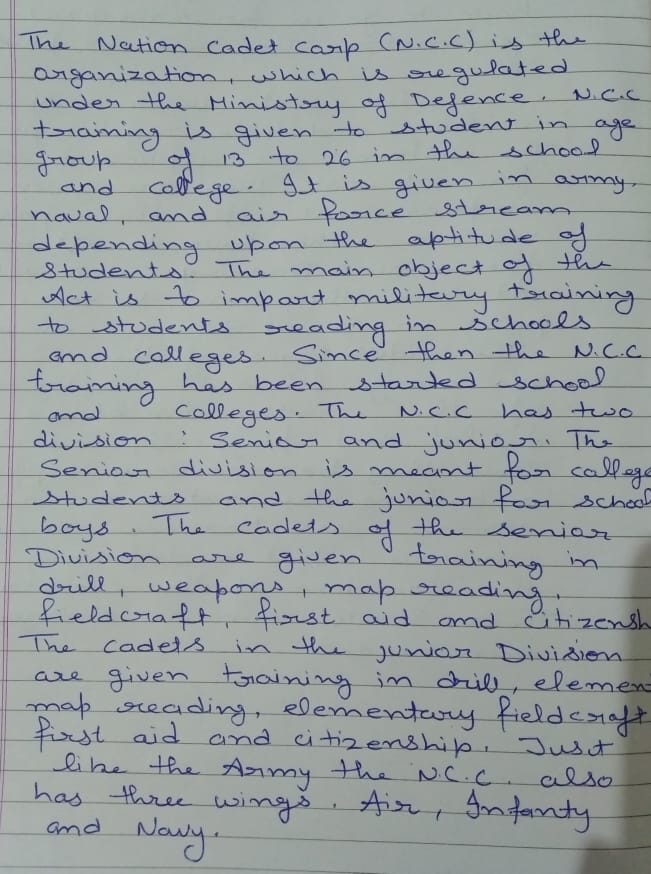 The Nation Cadet Carp (N.C.C) is the
organization, which is regulated
under the Ministory of Defence. N.C.C
training is given to student in age
group of 13 to 26 in the school
and college. It is given in army,
naval, and air foorce stream
depending upon the aptitude of
students. The main object of the
Act is to impart military training
to students reading in schools
and colleges. Since then the N.C.C
training has been started school
and colleges. The N.C.C has two
division : Senior and junior. The
Senior division is meant for college
students and the junior for school
boys. The cadets of the senior
Division are given training in
drill, weapons, map reading,
fieldcraft, first aid and citizensh
The cadets in the junior Division
are given training in drill, elemen
map reading, elementary fieldcraft
first aid and citizenship. Just
like the Army the N.C.C. also
has three wings. Air, Infanty
and Navy.